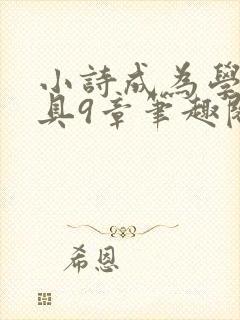 小詩成為學
具9章筆趣閣
希恩